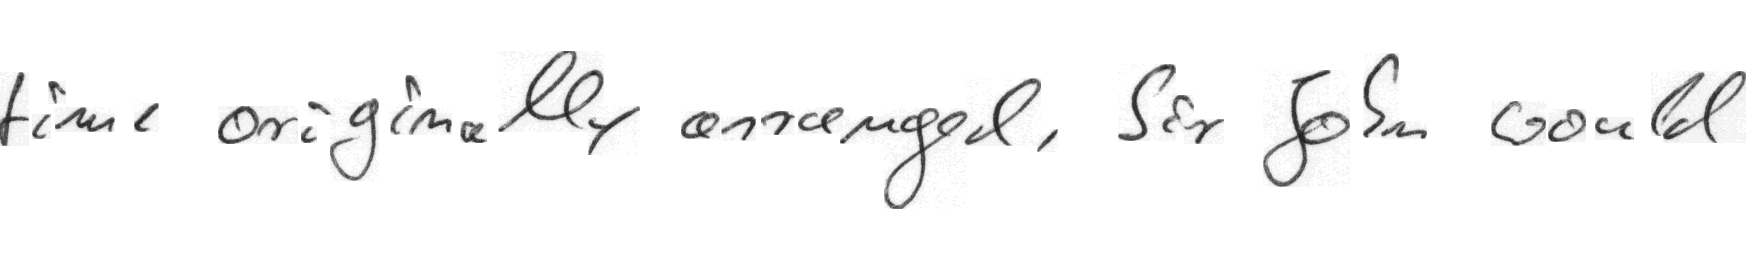 time originally arranged, Sir John would